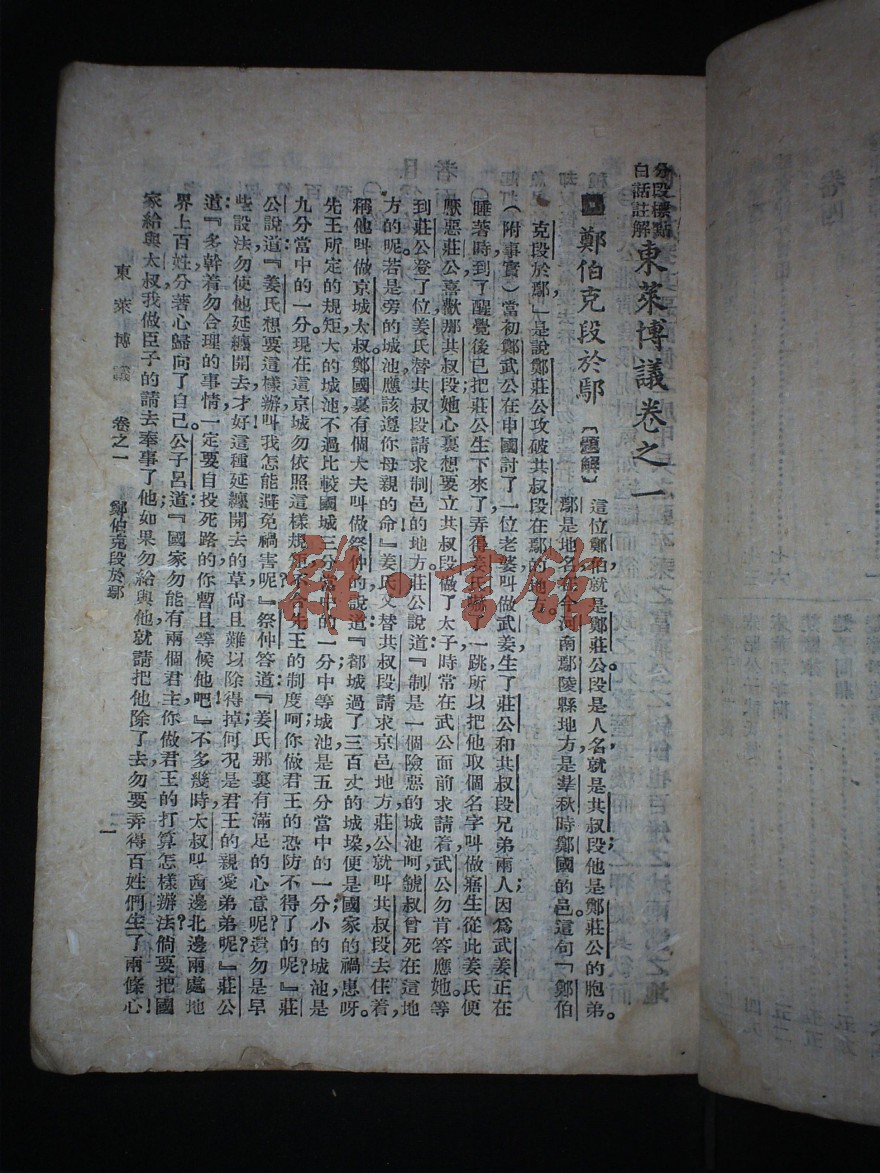 分段標點
白話註解
東萊博議卷之一
鄭伯克段於鄢
【題解】
這位鄭伯,就是鄭莊公。段是人名,就是共叔段,他是鄭莊公的胞弟。
鄢是地名,在今河南鄢陵縣地方,是春秋時鄭國的邑。這句「鄭伯
克段於鄢」是說鄭莊公攻破共叔段在鄢的地方。
(附事實)當初鄭武公在申國討了一位老婆,叫做武姜,生了莊公和共叔段兄弟兩人。因爲武姜正在
睡著時,到了醒覺後,已把莊公生下來了,弄得姜氏嚇了一跳,所以把他取個名字,叫做寤生。從此姜氏便
厭惡莊公,喜歡那共叔段,她心裏想要立共叔段做了太子,時常在武公面前求請着,武公勿肯答應她。等
到莊公登了位,姜氏替共叔段請求制邑的地方,莊公說道:『制是一個險惡的城池呵,虢叔曾死在這地
方的呢。若是旁的城池,應該遵你母親的命。』姜氏又替共叔段請求京邑地方,莊公就叫共叔段去住着,
稱他叫做京城太叔。鄭國裏有個大夫叫做祭仲的說道:『都城過了三百丈的城垛,便是國家的禍患呀。
先王所定的規矩,大的城池,不過比較國城三分當中的一分;中等城池,是五分當中的一分;小的城池,是
九分當中的一分。現在這京城勿依照這樣規矩,不合先王的制度呵,你做君王的恐防不得了的呢?』莊
公說道:『姜氏想要這樣辦,叫我怎能避免禍害呢?』祭仲答道:『姜氏那裏有滿足的心意呢?還勿是早
些設法,勿使他延纏開去才好;這種延纏開去的草,尙且難以除得掉,何況是君王的親愛弟弟呢?』莊公
道:『多幹着勿合理的事情,一定要自投死路的,你暫且等候他吧!』不多幾時,太叔叫西邊北邊兩處地
界上百姓分著心,歸向了自己。公子呂道:『國家勿能有兩個君主,你做君王的打算怎樣辦法?倘要把國
家給與太叔,我做臣子的請去奉事了他;如果勿給與他,就請把他除了去,勿要弄得百姓們生了兩條心!
東萊博議 卷之一 鄭伯克段於鄢
一
雜·書館
卷四